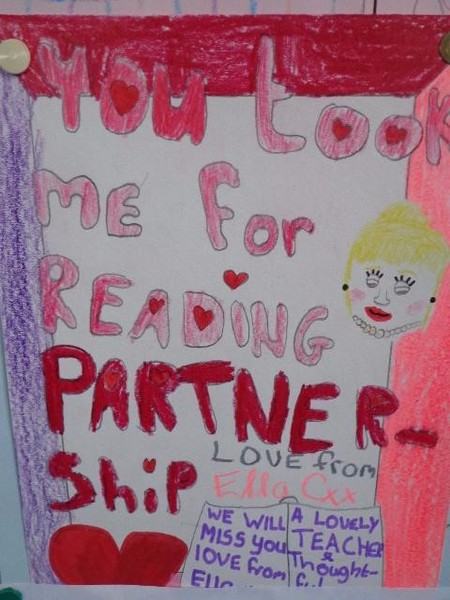 You took
ME For
READING
PARTNER-
Ship
LOVE from
Ella Cxx
WE WILL
MISS you
love from
Ella
A LOVELY
TEACHER
&
Thought-
ful